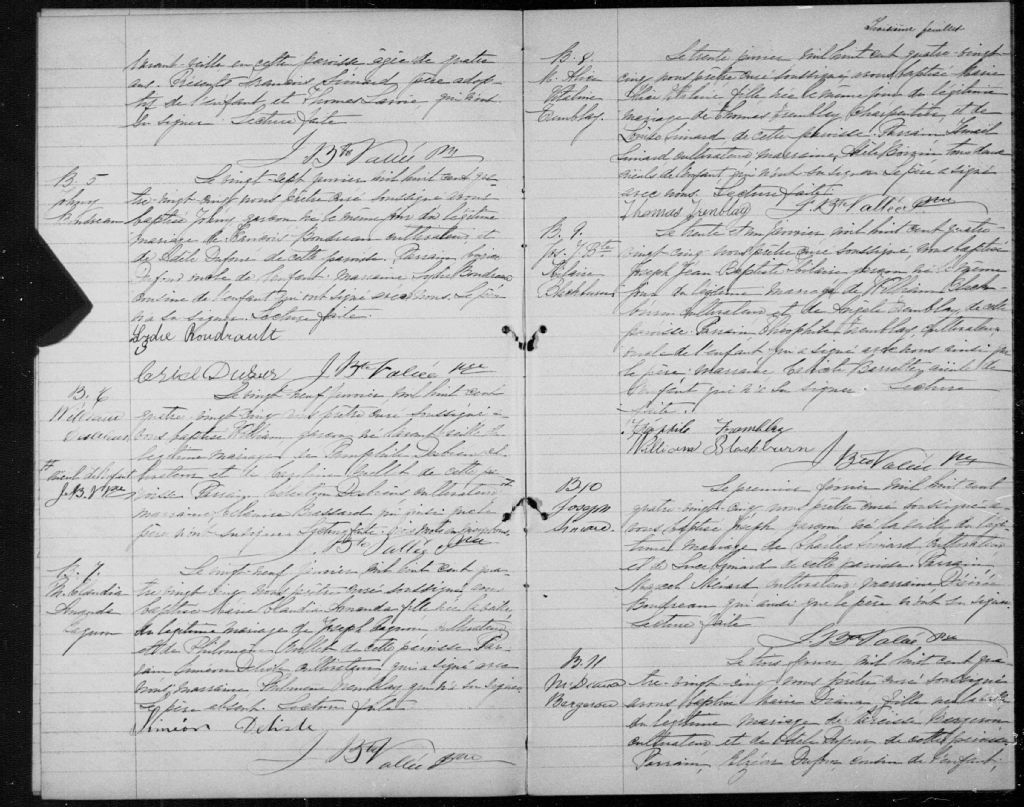 avant-veille en cette paroisse âgée de quatre
ans. Présents François Simard père adop-
tif de l'enfant, et Thomas Lavoie qui n'ont
su signer. Lecture faite
J. Bte Vallée Ptre
B. 5
Johnny
Boudreau
Le vingt-sept janvier mil huit cent qua-
tre-vingt-cinq nous prêtre curé soussigné avons
baptisé Johnny garçon né le même jour du légitime
mariage de François Boudreau cultivateur, et
de Adèle Dufour de cette paroisse. Parrain
Dufour oncle de l'enfant. Marraine Lydie Boudreau
cousine de l'enfant qui ont signé avec nous. Le père
n'a su signer. Lecture faite.
Lydie Boudrault
J. Bte Vallée Ptre
B. 6
William
Le vingt neuf janvier mil huit cent
quatre-vingt-cinq nous prêtre curé soussigné a-
vons baptisé William garçon né l'avant-veille du
légitime mariage de
de cette pa-
roisse Parrain Célestin cultivateur
marraine Brassard qui ainsi que le
père n'ont su signer. Lecture faite
J. Bte Vallée Ptre
J. B. V. Ptre
B. 7
M. Claudia
Amanda
Gagnon
Le vingt-neuf janvier mil huit cent qua-
tre vingt cinq nous prêtre curé soussigné avons
baptisé Marie Claudia Amanda fille née la veille
du légitime mariage de Joseph Gagnon, cultivateur
et de Philomène de cette paroisse. Par-
rain Siméon Delisle cultivateur qui a signé avec
nous, marraine Philomène Tremblay qui n'a su signer
le père absent. Lecture faite
Siméon Delisle
J. Bte Vallée Ptre
Troisième feuillet
B. 8
M. Alice
Vitaline
Tremblay
Le trente janvier mil huit cent quatre-vingt
cinq nous prêtre curé soussigné, avons baptisé Marie
Alice Vitaline fille née le même jour du légitime
mariage de Thomas Tremblay, charpentier, et de
Louise Simard de cette paroisse. Parrain
Simard cultivateur, marraine, Adèle
de l'enfant qui n'ont su signer. Le père a signé
avec nous. Lecture faite
Thomas Tremblay J. Bte Vallée Ptre
B. 9.
Jos. J. Bte
Hilaire
Blackburn
Le trente et un janvier mil huit cent quatre
vingt cinq nous prêtre curé soussigné, avons baptisé
Joseph Jean Baptiste Hilaire garçon né le même
jour du légitime mariage de William Black-
burn cultivateur et de Angèle Tremblay de cette
paroisse. Parrain Théophile Tremblay, cultivateur
oncle de l'enfant qui a signé avec nous ainsi que
le père, marraine
l'enfant qui n'a su signer. Lecture
faite.
Tremblay
William Blackburn
J. Bte Vallée Ptre
B 10
Joseph
Simard
Le premier février mil huit cent
quatre-vingt cinq nous prêtre curé soussigné a-
vons baptisé Joseph garçon né la veille du légi-
time mariage de Charles Simard cultivateur
et de de cette paroisse. Parrain
cultivateur marraine
Boudreau qui ainsi que le père n'ont su signer
Lecture faite
J. Bte Vallée Ptre
B. 11
M. Diana
Bergeron
Le trois février mil huit cent qua-
tre-vingt-cinq nous prêtre curé soussigné
avons baptisé Marie Diana, fille née la veille
du légitime mariage de Narcisse Bergeron
cultivateur et de Adèle Dufour de cette paroisse
Parrain, Elzéar Dufour, cousin de l'enfant,